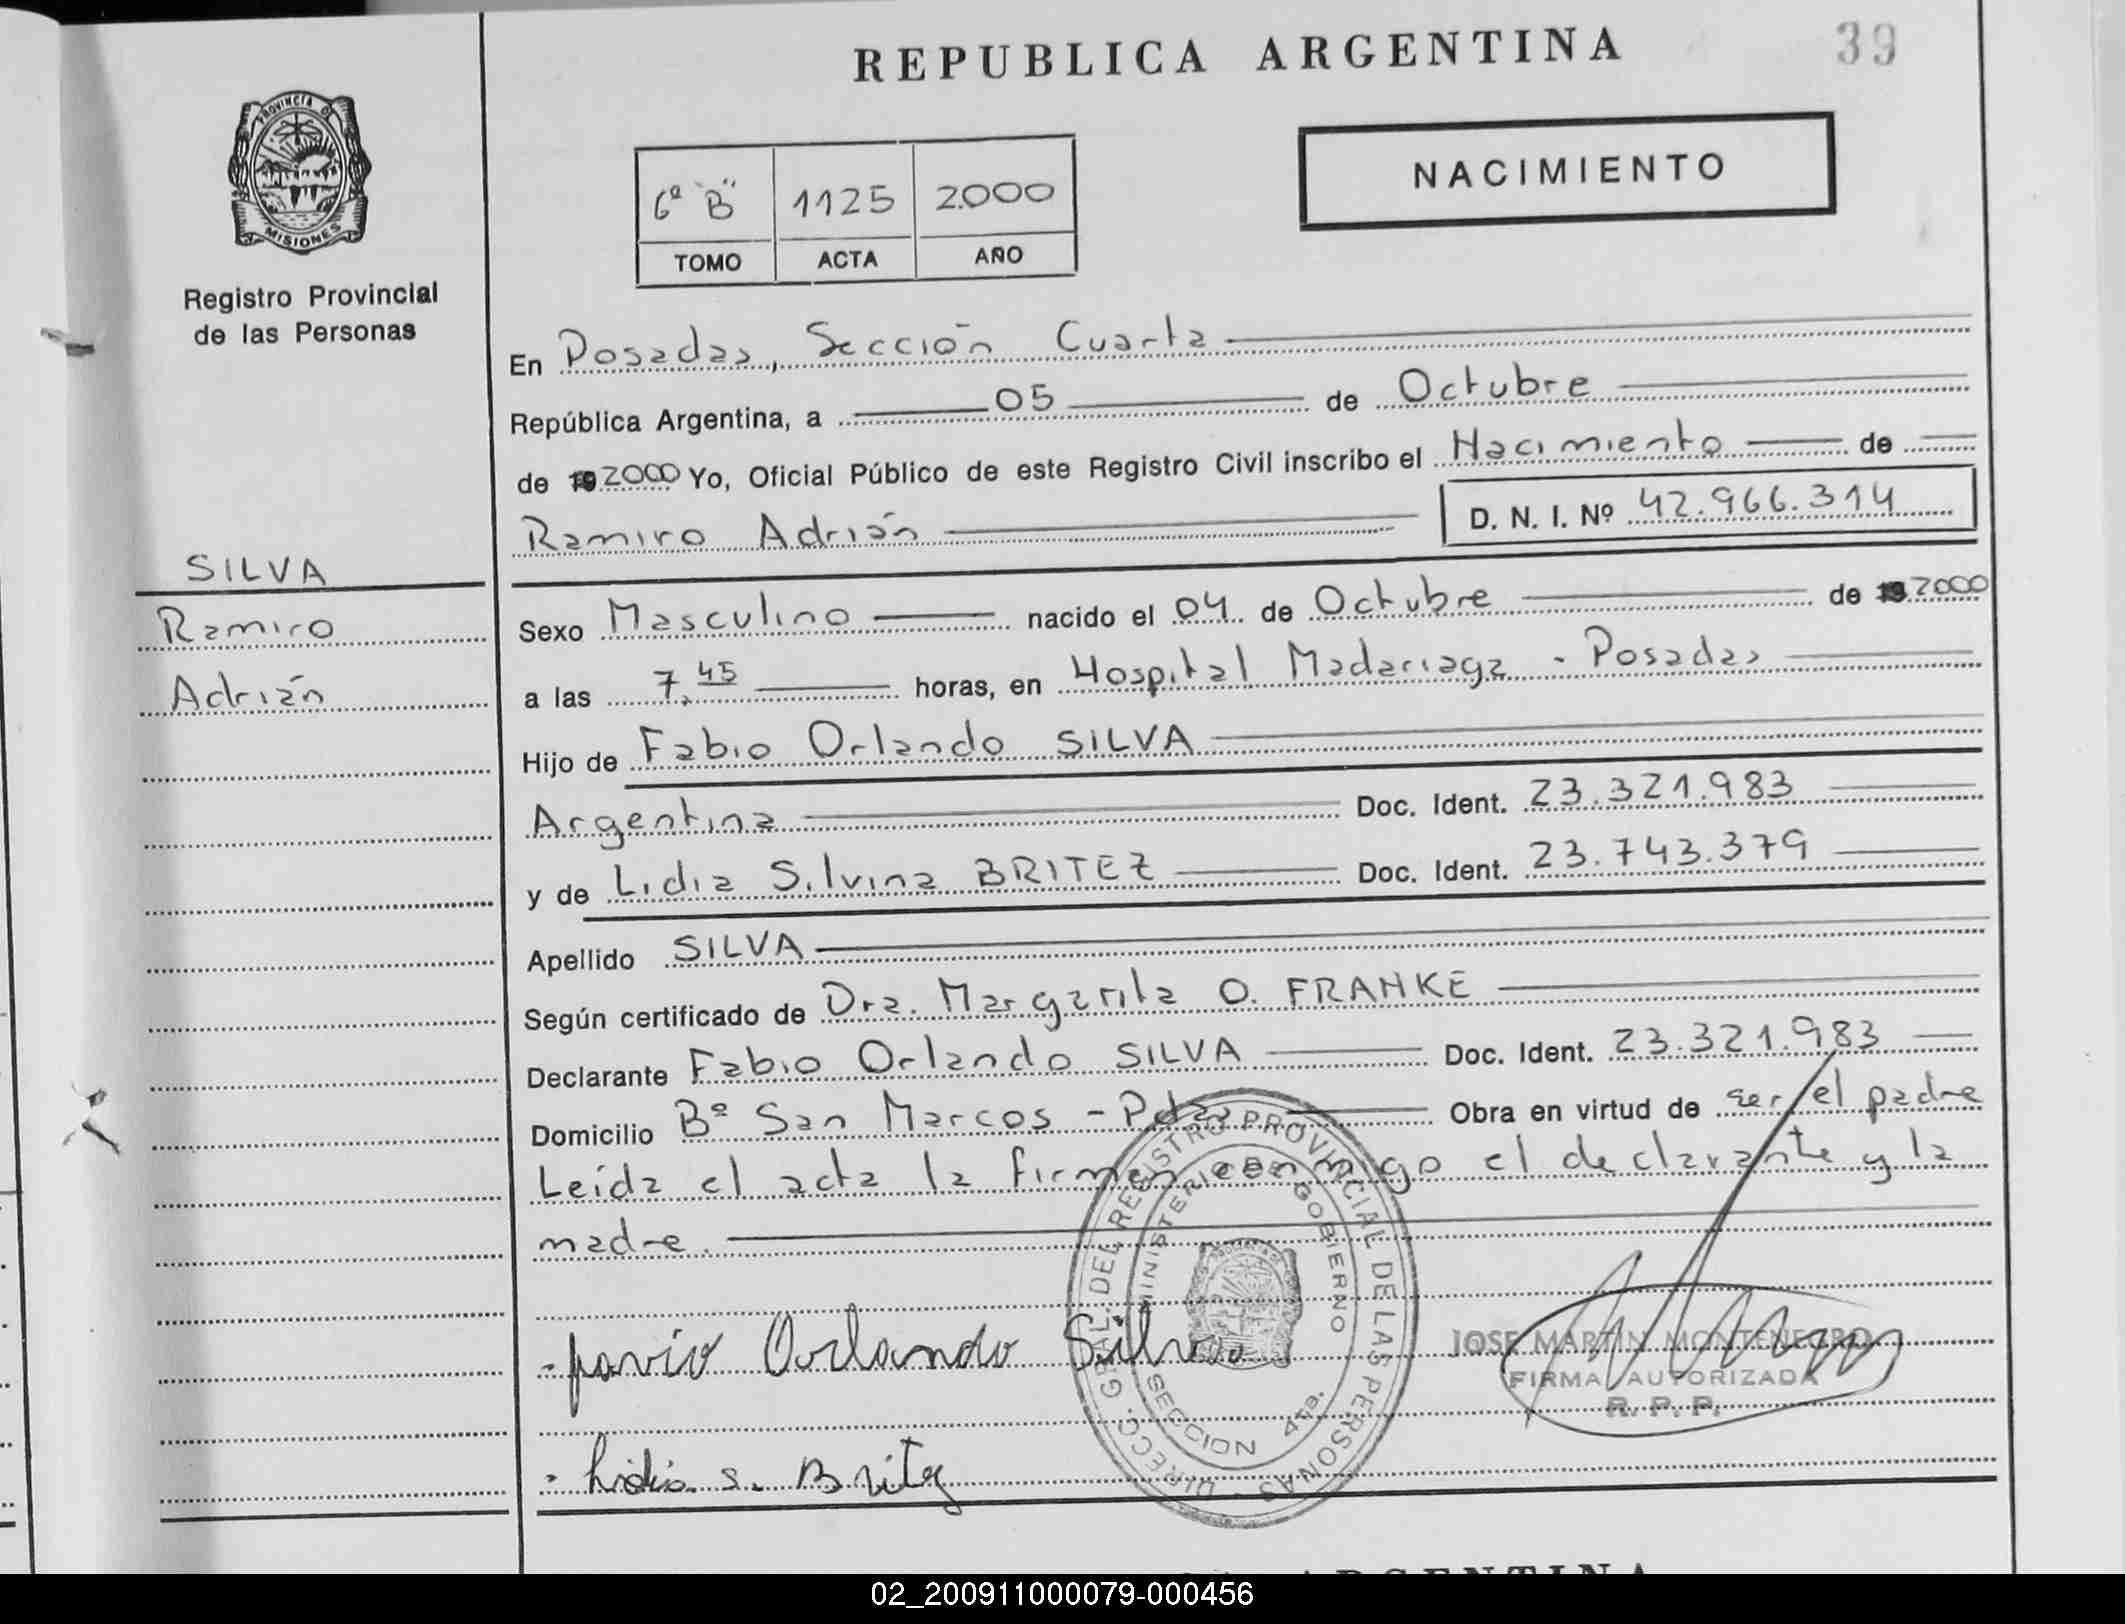 REPUBLICA ARGENTINA
39
PROVINCIA DE MISIONES
Registro Provincial
de las Personas
NACIMIENTO
6ª "B" 1125 2000
TOMO ACTA AÑO
En Posadas, Sección Cuarta
República Argentina, a 05 de Octubre
de 19 2000 Yo, Oficial Público de este Registro Civil inscribo el Nacimiento de
Ramiro Adrián D. N. I. Nº 42.966.314
SILVA
Ramiro
Adrián
Sexo Masculino nacido el 04 de Octubre de 19 2000
a las 7,45 horas, en Hospital Madariaga - Posadas
Hijo de Fabio Orlando SILVA
Argentina Doc. Ident. 23.321.983
y de Lidia Silvina BRITEZ Doc. Ident. 23.743.379
Apellido SILVA
Según certificado de Dra. Margarita O. FRANKE
Declarante Fabio Orlando SILVA Doc. Ident. 23.321.983
Domicilio Bº San Marcos - Pdas Obra en virtud de ser el padre
Leída el acta la firman conmigo el declarante y la
madre.
Orlando Silva
Lidia S. Britez
DIRECC. GRAL. DEL REGISTRO PROVINCIAL DE LAS PERSONAS
MINISTERIO DE GOBIERNO
SECCION 4ta.
JOSE MARTIN MONTENEGRO
FIRMA AUTORIZADA
R. P. P.
ARGENTINA
02_200911000079-000456